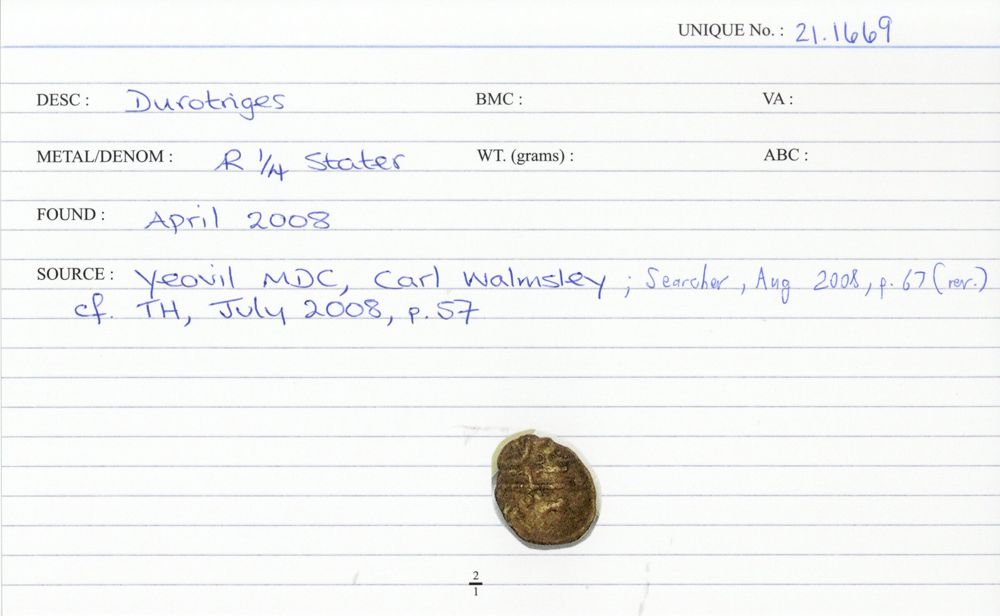 UNIQUE No. : 21.1669
DESC : Durotriges BMC : VA :
METAL/DENOM : Æ 1/4 Stater WT. (grams) : ABC :
FOUND : April 2008
SOURCE : Yeovil MDC, Carl Walmsley ; Searcher, Aug 2008, p. 67 (rev.)
cf. TH, July 2008, p. 57
2
1